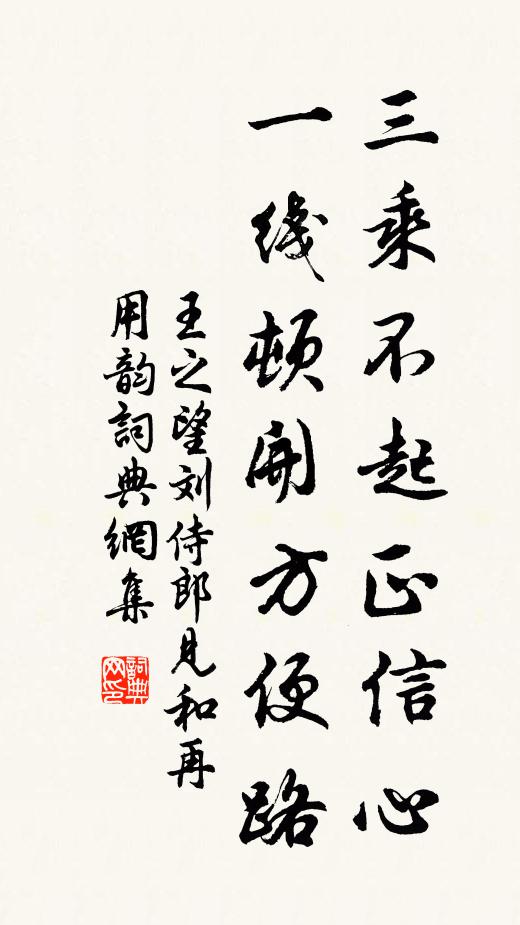 三乘不起正信心
一线顿開方便路
王之望刘侍郎見和再
用韵詞典網集
詞典网印